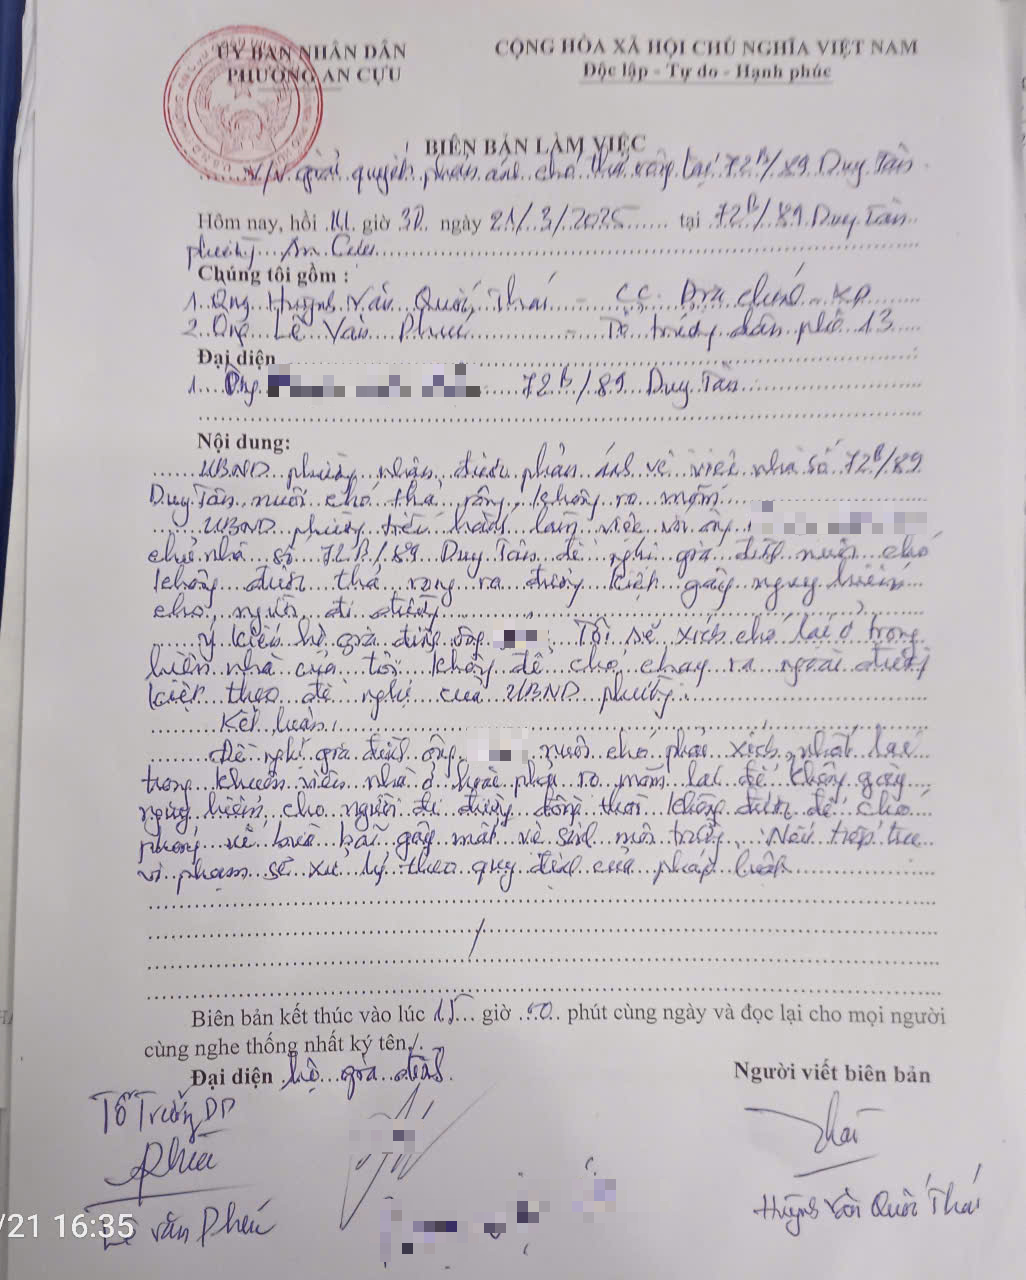 ỦY BAN NHÂN DÂN
PHƯỜNG AN CỰU
CỘNG HÒA XÃ HỘI CHỦ NGHĨA VIỆT NAM
Độc lập - Tự do - Hạnh phúc
BIÊN BẢN LÀM VIỆC
V/v giải quyết phản ánh chó thả rông tại 72B/89 Duy Tân
Hôm nay, hồi 14 giờ 30 ngày 21/3/2025 tại 72B/89 Duy Tân
phường An Cựu
Chúng tôi gồm :
1. Ông Huỳnh Văn Quốc Thái - CC. Địa chính - XD
2. Ông Lê Văn Phui - Tổ trưởng dân phố 13
Đại diện
1. Ông 72B/89 Duy Tân
Nội dung:
UBND phường nhận được phản ánh về việc nhà số 72B/89
Duy Tân nuôi chó thả rông, không rọ mõm.
UBND phường tiến hành làm việc với ông
chủ nhà số 72B/89 Duy Tân đề nghị gia đình nuôi chó
không được thả rong ra đường kiệt gây nguy hiểm
cho người đi đường
Ý kiến hộ gia đình ông : Tôi sẽ xích chó lại ở trong
hiên nhà của tôi không để chó chạy ra ngoài đường
kiệt theo đề nghị của UBND phường.
Kết luận:
Đề nghị gia đình ông nuôi chó phải xích, nhốt lại
trong khuôn viên nhà ở hoặc phải rọ mõm lại để không gây
nguy hiểm cho người đi đường đồng thời không được để chó
phóng uế bừa bãi gây mất vệ sinh môi trường. Nếu tiếp tục
vi phạm sẽ xử lý theo quy định của pháp luật
Biên bản kết thúc vào lúc 15 giờ 50 phút cùng ngày và đọc lại cho mọi người
cùng nghe thống nhất ký tên./.
Đại diện hộ gia đình
Người viết biên bản
Tổ Trưởng DP
Thái
Lê Văn
Huỳnh Văn Quốc Thái
/21 16:35